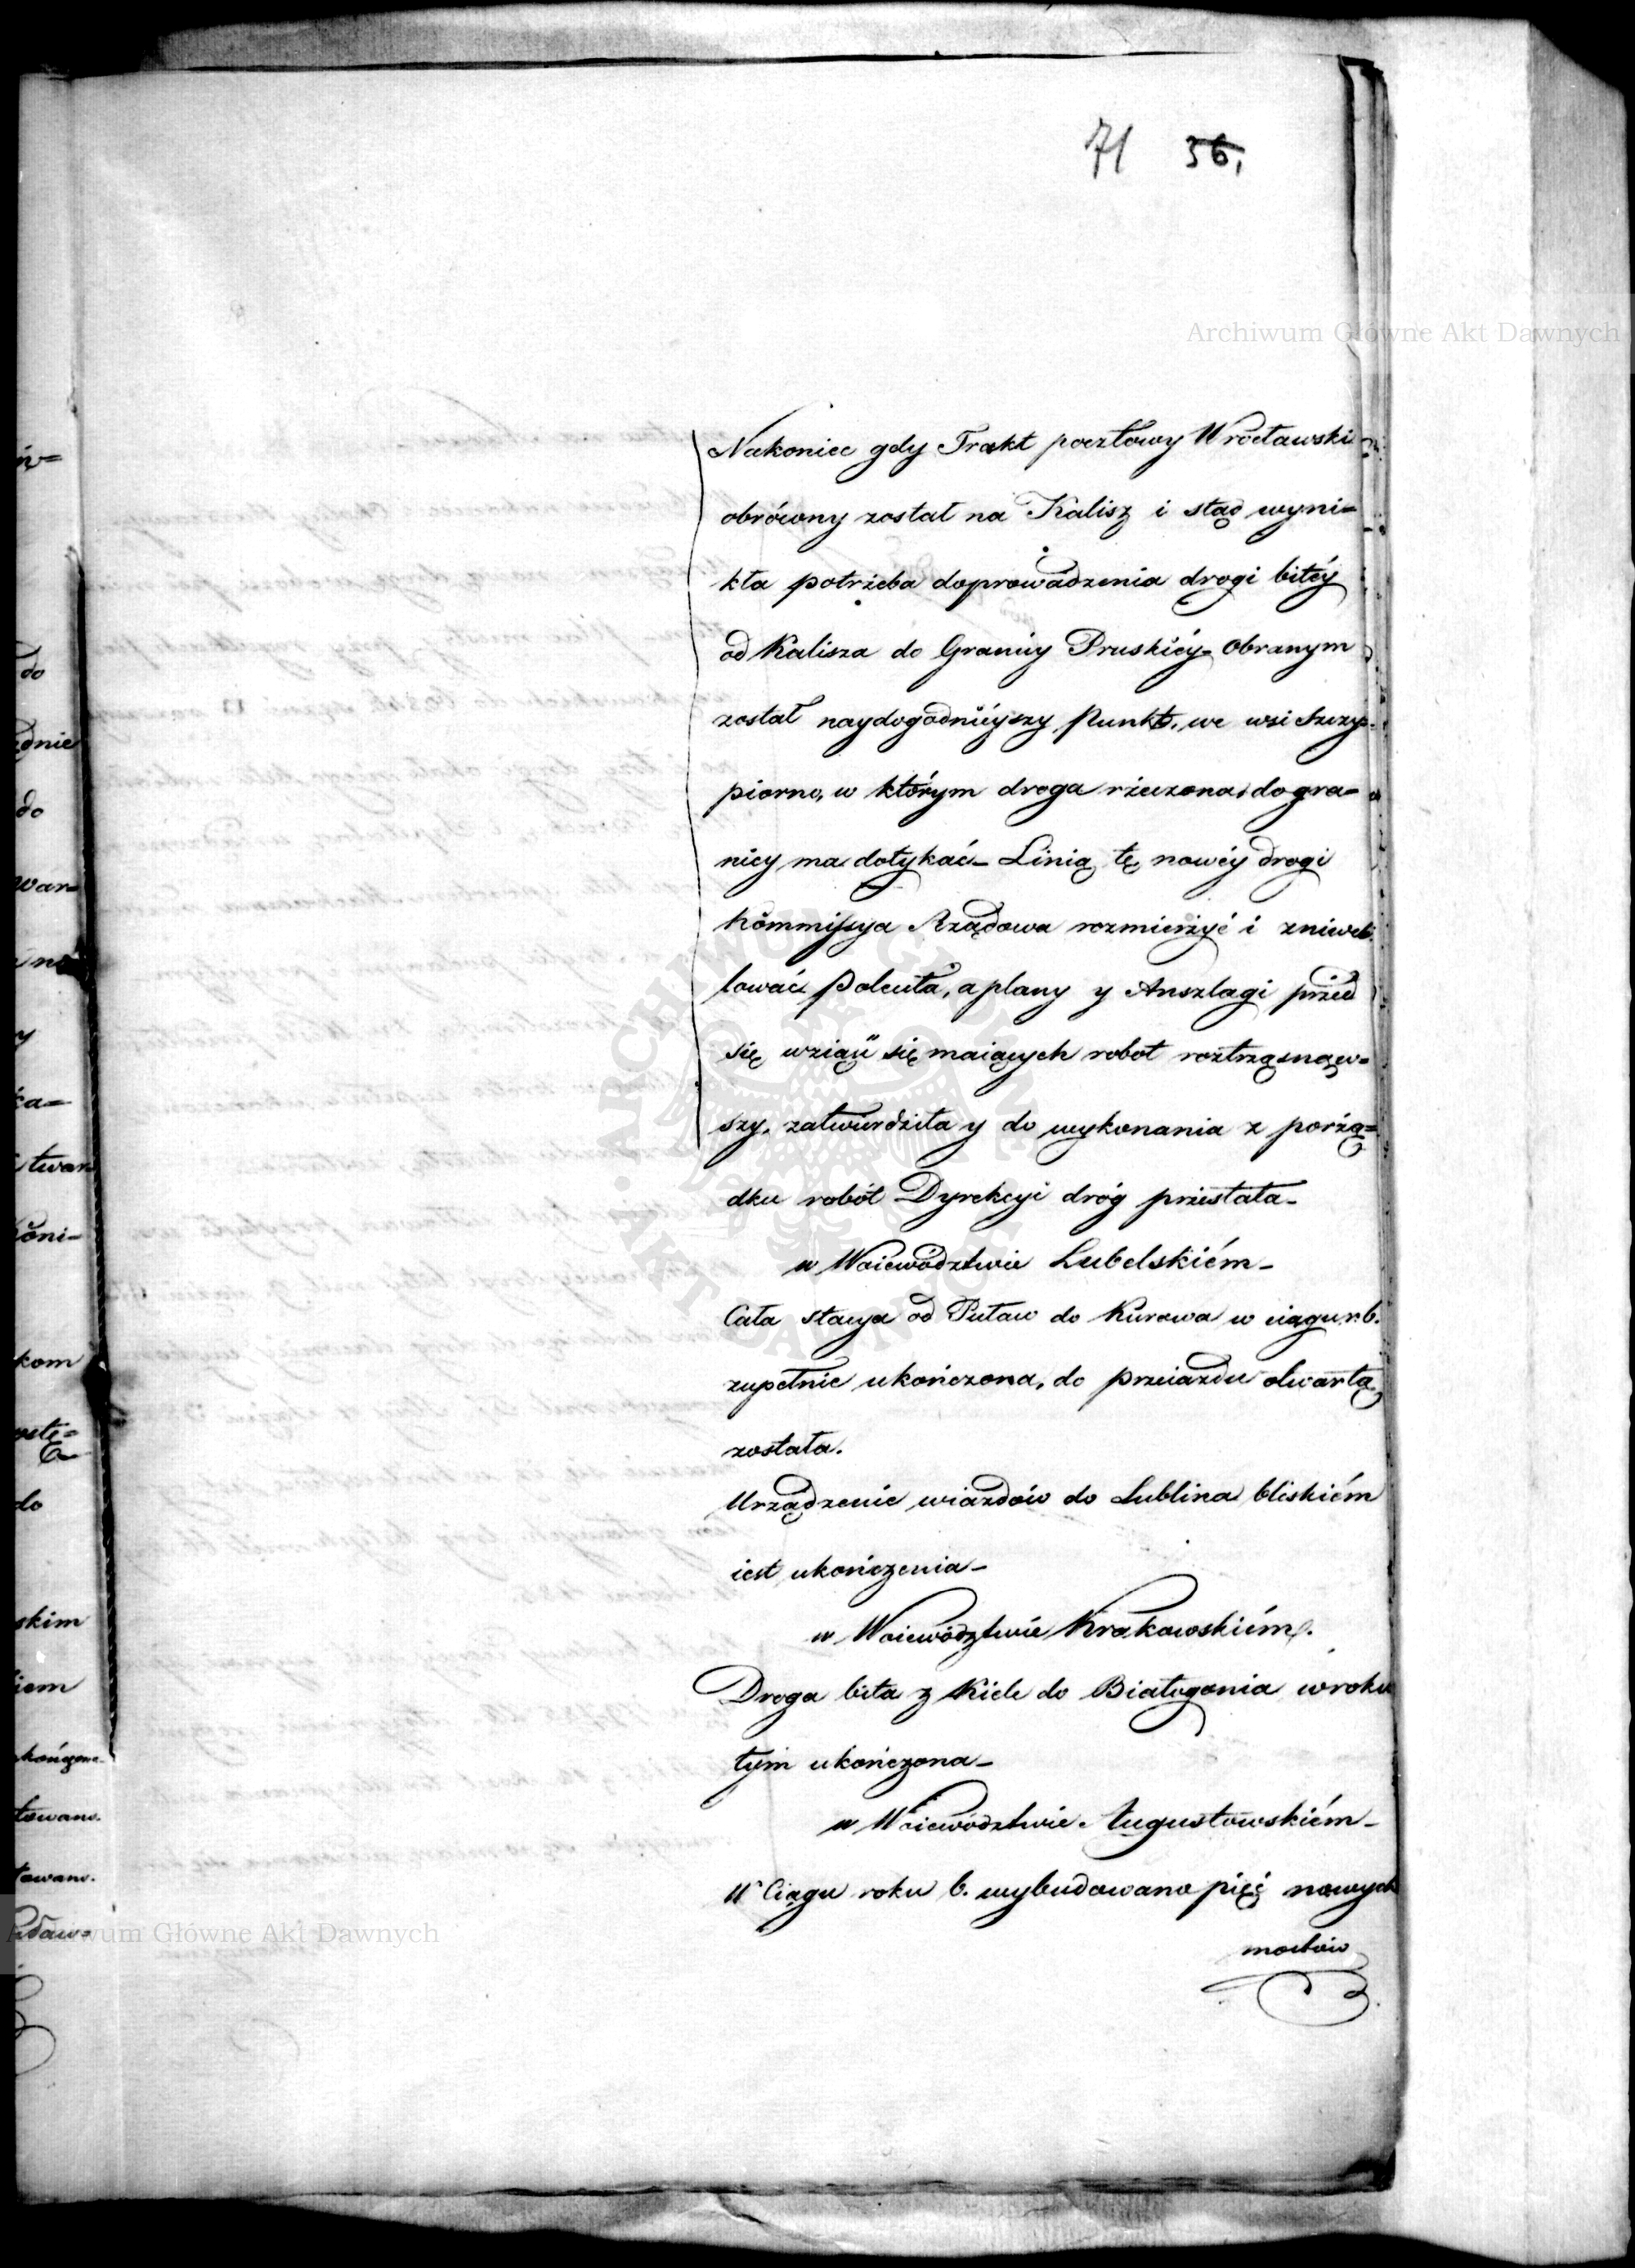 71 36,
Archiwum Główne Akt Dawnych
Nakoniec gdy Trakt pocztowy Wrocławski
obrócony został na Kalisz i stąd wyni=
kła potrzeba doprowadzenia drogi bitéy
od Kalisza do Granicy Pruskiéy Obranym
został naydogodniéyszy Punkt, we wsi Szczy=
piorno, w którym droga rzeczona do gra=
nicy ma dotykać_ Linią tę nowéy drogi
Kommissya Rządowa rozmierzyć i zniwel
lować Poleciła, a plany y Anszlagi przed
się wziąść się maiących robot roztrząsnąw=
szy, zatwierdziła y do wykonania z porzą=
dku robót Dyrekcyi dróg przesłała_
w Woiewództwie Lubelskiém_
Cała stacya od Puław do Kurowa w ciągu r. b.
zupełnie ukończona, do przeiazdu otwartą
została.
Urządzenie wiazdów do Lublina bliskiém
iest ukończenia_
w Woiewództwie Krakowskiém.
Droga bita z Kielc do Białogonia w roku
tym ukończona_
w Woiewództwie Augustowskiém_
W Ciągu roku b. wybudowano pięć nowych
mostów
do
dnie
do
war=
ka=
twar
kom
do
skim
iem
kończone
towano.
towano.
Archiwum Główne Akt Dawnych
ARCHIWUM GŁÓWNE AKT DAWNYCH